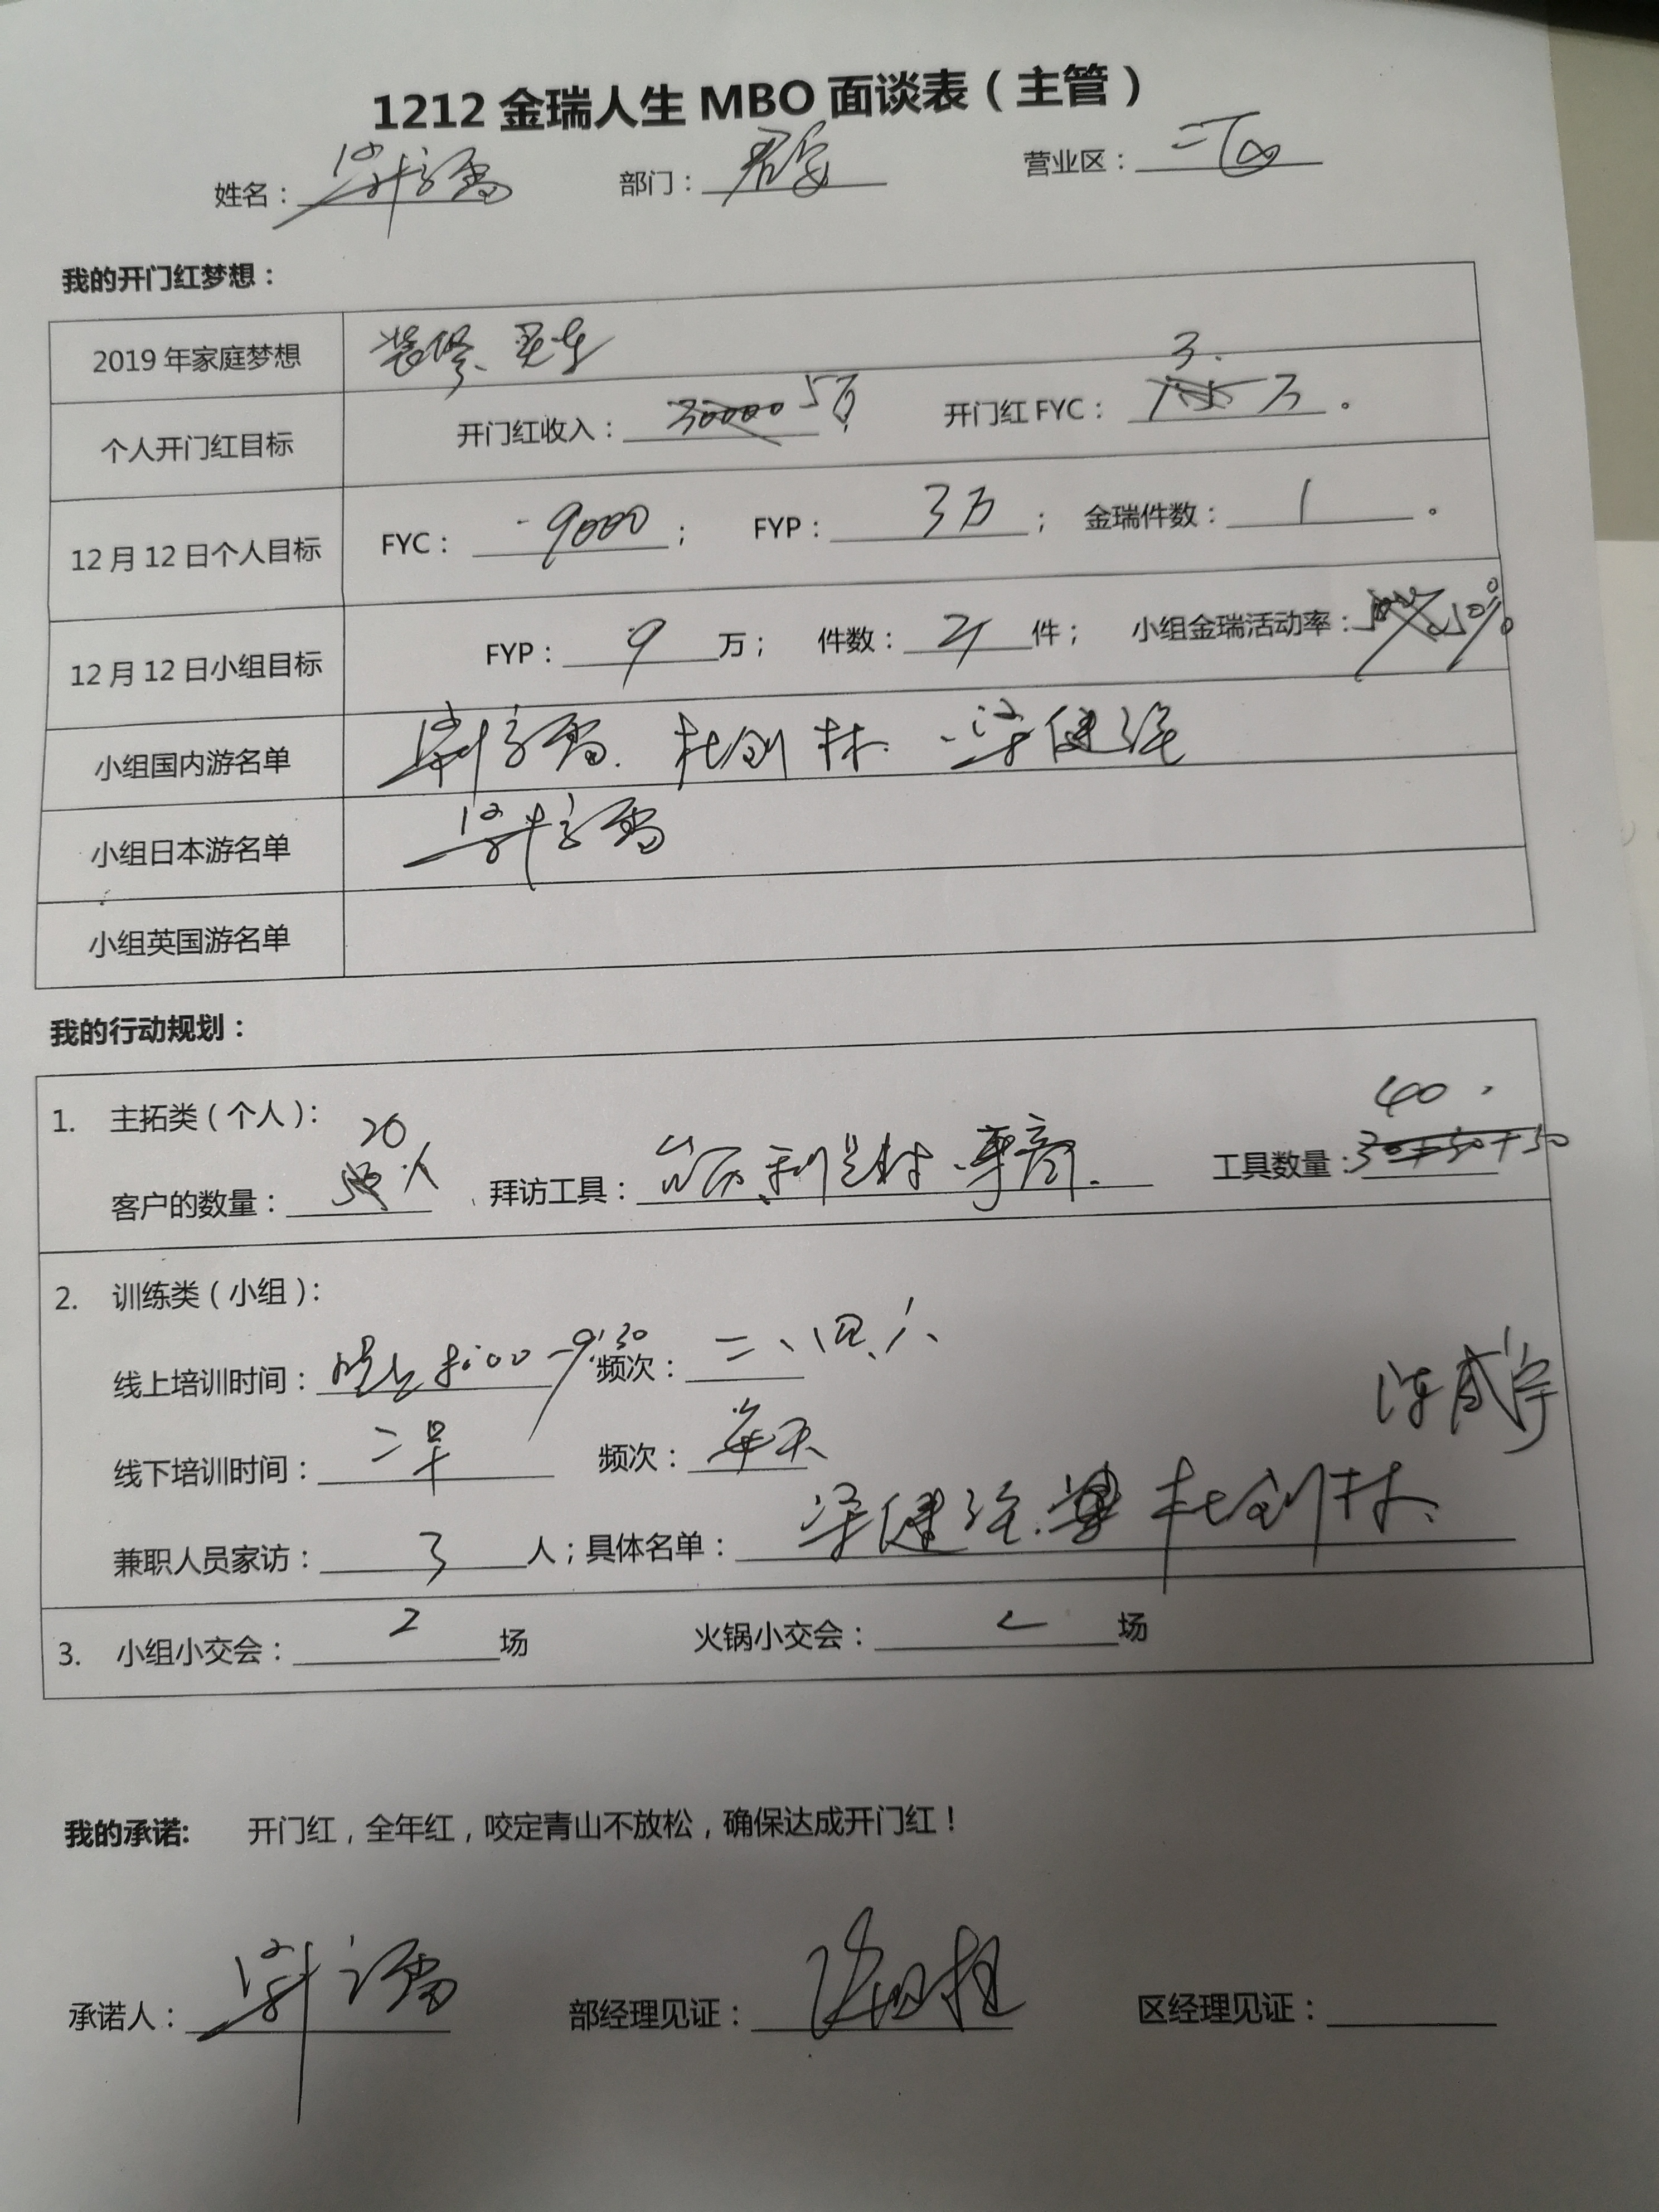 1212金瑞人生MBO面谈表(主管)
姓名: 部门: 营业区:
我的开门红梦想:
2019年家庭梦想 装修、买车
个人开门红目标 开门红收入: 30000 5万 开门红FYC: 3. 万。
12月12日个人目标 FYC: 9000; FYP: 3万; 金瑞件数: 1。
12月12日小组目标 FYP: 9万; 件数: 件; 小组金瑞活动率: 50%
小组国内游名单 杜创林 梁健
小组日本游名单
小组英国游名单
我的行动规划:
1. 主拓类(个人):
20 40
客户的数量: 人 拜访工具: 工具数量: 30+50+50
2. 训练类(小组):
线上培训时间: 晚上8:00-9:30 频次: 二、四、六
线下培训时间: 二早 频次: 每天
陈威宇
兼职人员家访: 3人;具体名单: 梁健 杜创林、
3. 小组小交会: 2场 火锅小交会: 2场
我的承诺: 开门红,全年红,咬定青山不放松,确保达成开门红!
承诺人: 部经理见证: 区经理见证: